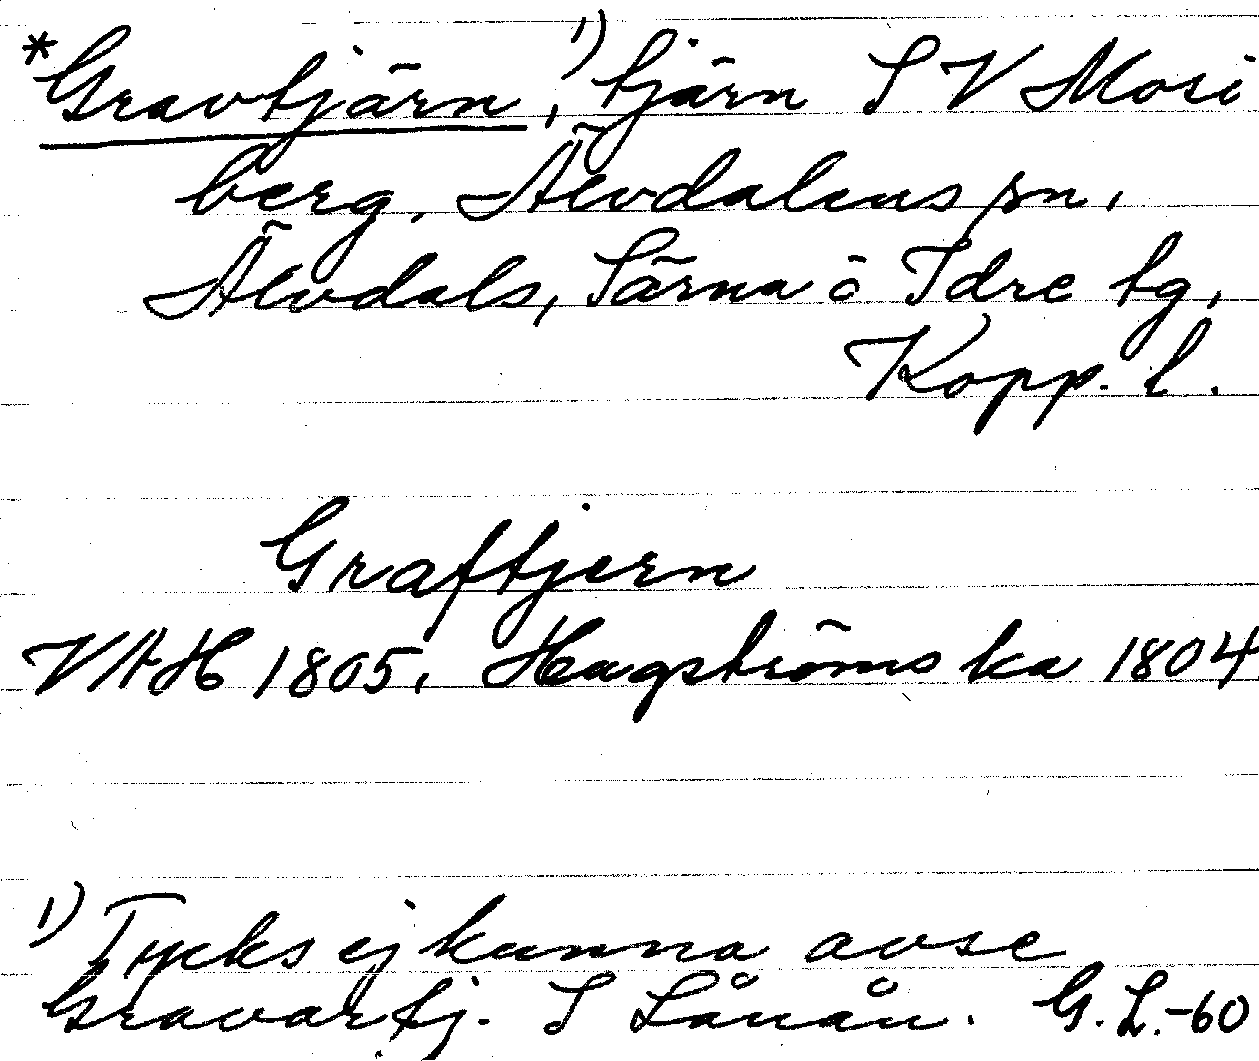 *Gravtjärn, 1) tjärn S V Mosi
berg. Älvdalens sn,
Älvdals, Särna o Idre tg,
Kopp. l.
Graftjern
VAH 1805. Hagströms ka 1804
1) Tycks ej kunna avse
Gravartj. S Lånån. G. L. -60